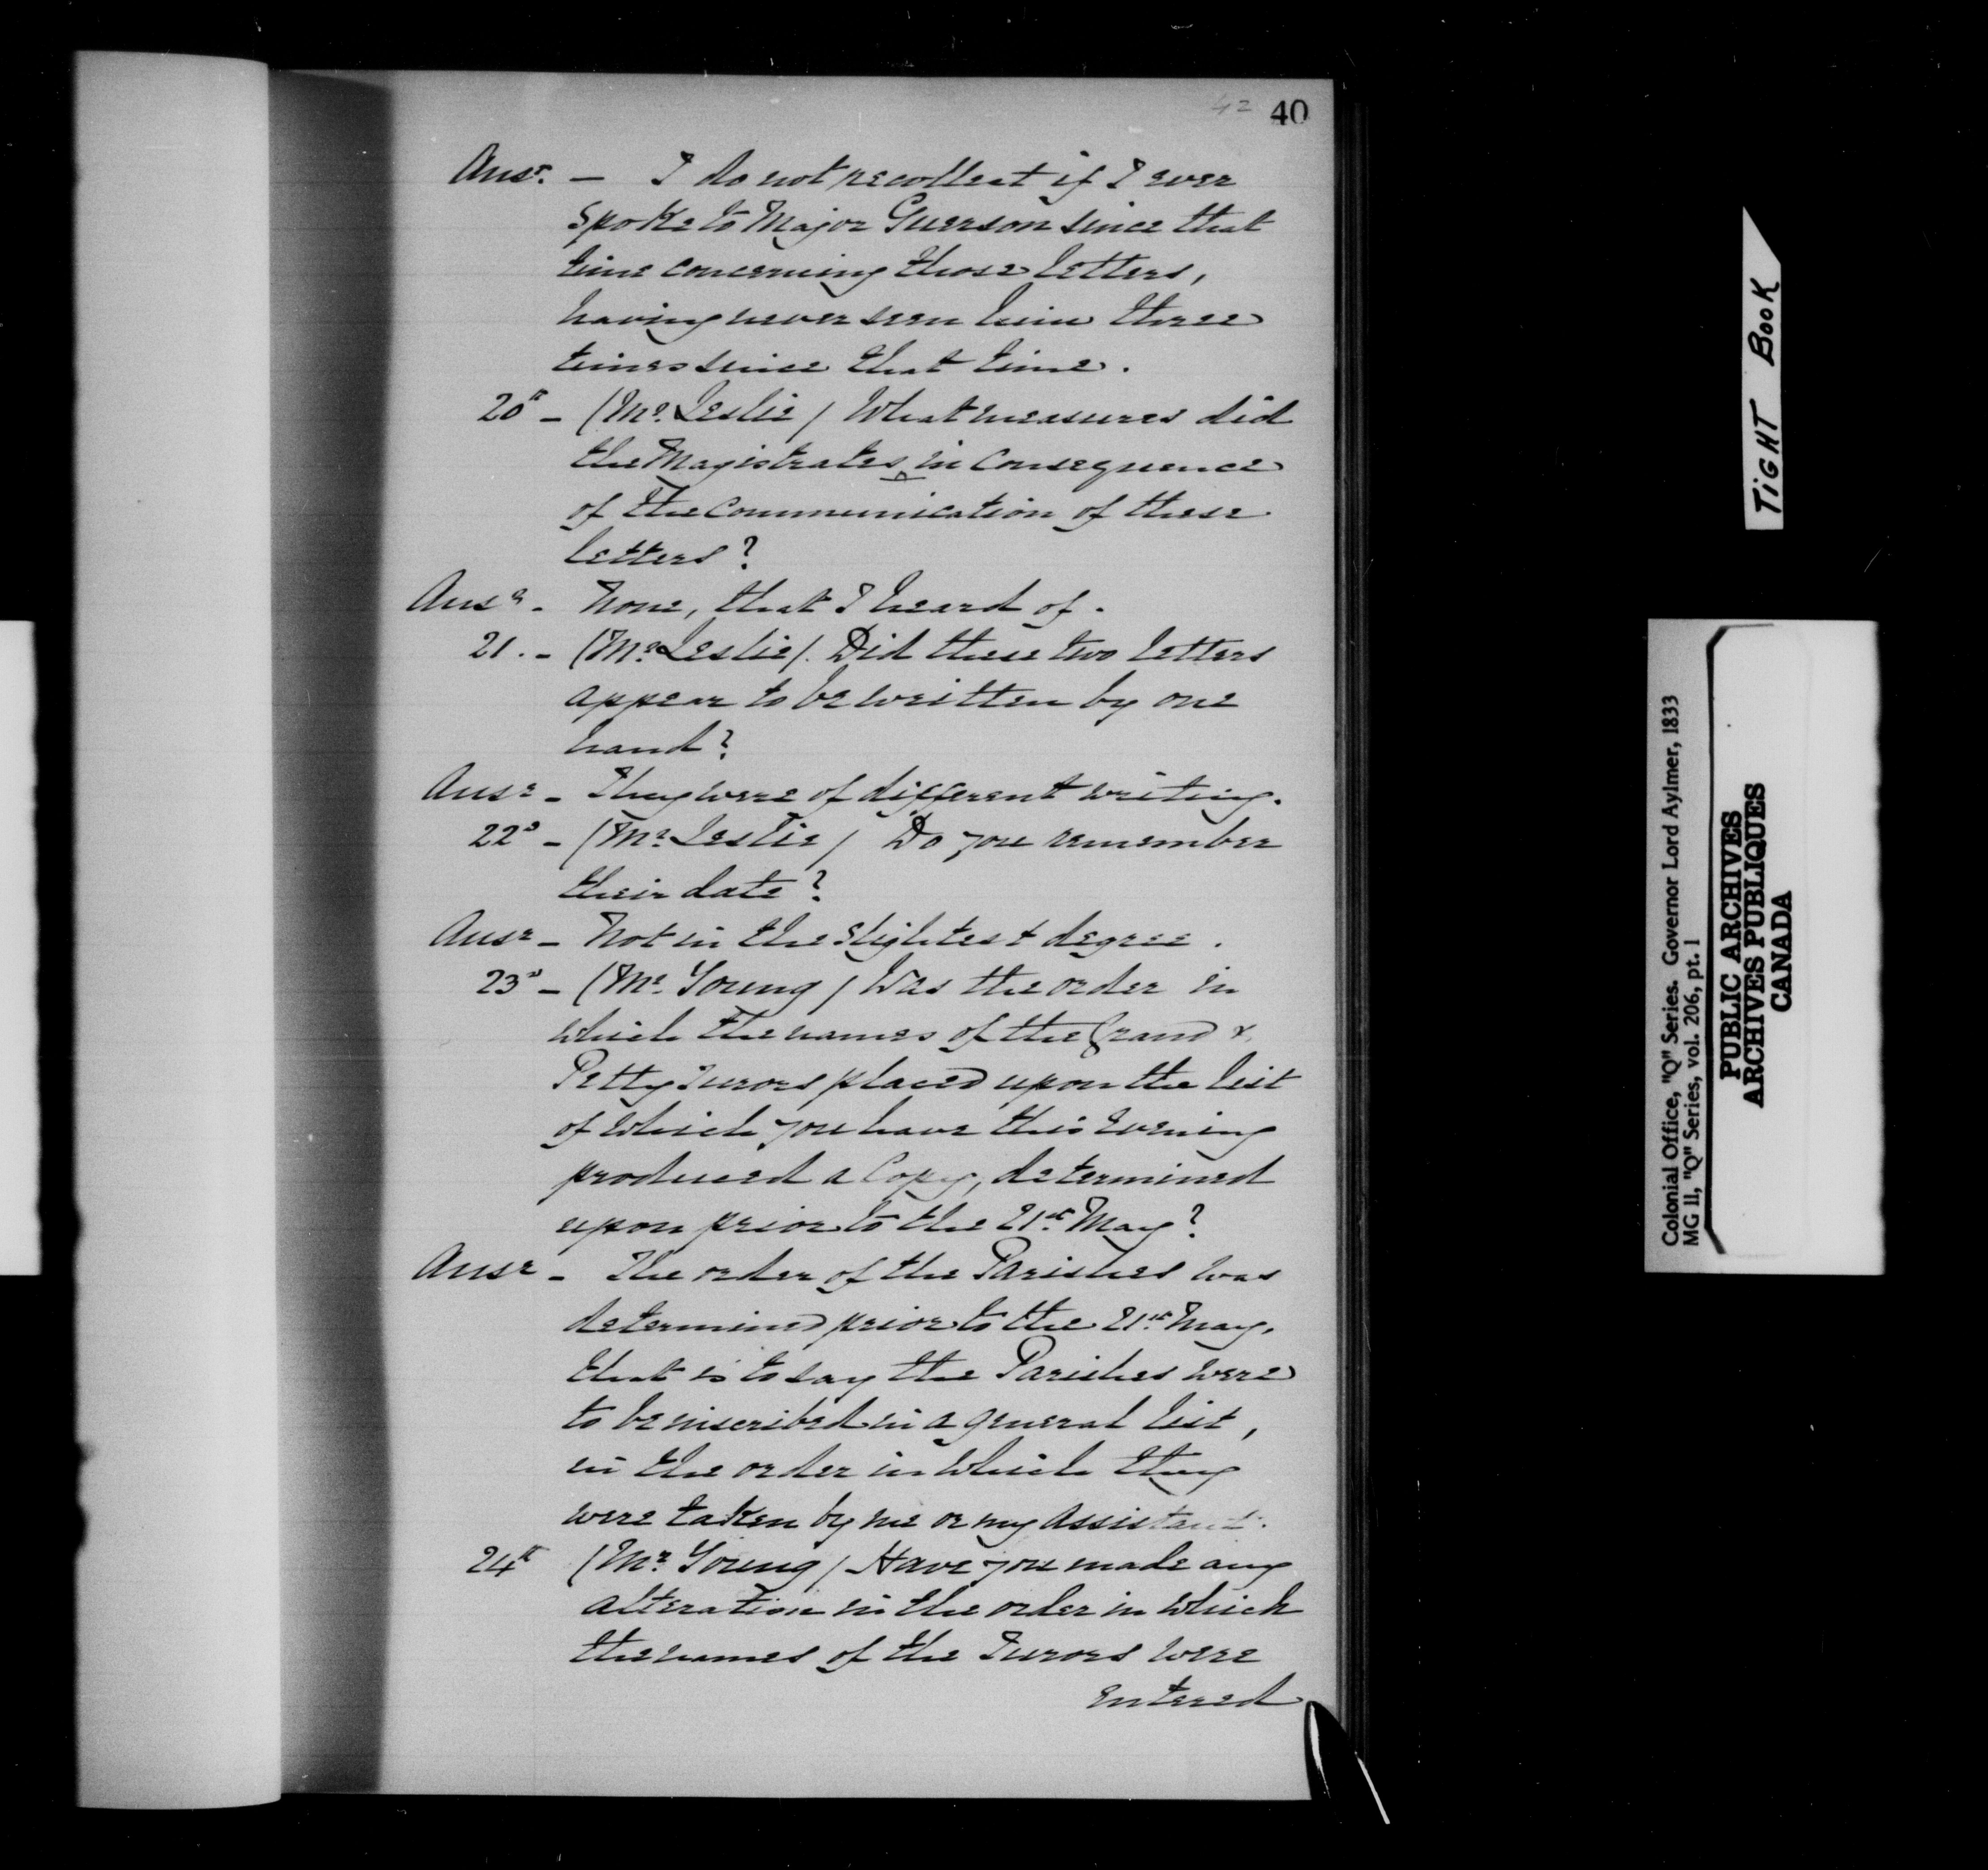 42 40
Ansr. — I do not recollect if I ever
spoke to Major Guerson since that
time concerning those letters,
having never seen him three
times since that time.
20th — (Mr. Leslie / What measures did
the Magistrates in consequence
of the communication of these
letters?
Ansr. None, that I heard of.
21. — (Mr. Leslie /. Did these two letters
appear to be written by one
hand?
Ansr — They were of different writing.
22d — (Mr. Leslie / Do you remember
their date?
Ansr — Not in the slightest degree.
23d — (Mr. Young / Was the order in
which the names of the Grand &
Petty Jurors placed upon the list
of which you have this Evening
produced a Copy, determined
upon prior to the 21st May?
Ansr — The order of the Parishes was
determined prior to the 21st May,
that is to say the Parishes were
to be inscribed in a general list,
in the order in which they
were taken by me or my Assistant.
24th (Mr. Young / Have you made any
alteration in the order in which
the names of the Jurors were
Entered
TIGHT BOOK
Colonial Office, "Q" Series. Governor Lord Aylmer, 1833
MG 11, "Q" Series, vol. 206, pt. 1
PUBLIC ARCHIVES
ARCHIVES PUBLIQUES
CANADA